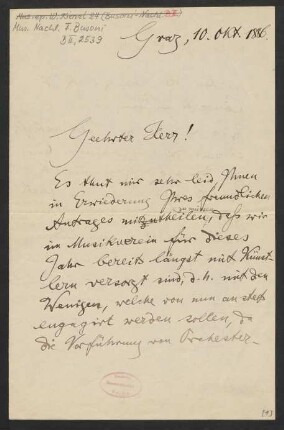 Mus. ep. W. Kienzl 24 (Busoni-Nachl.
Mus. Nachl. F. Busoni
B II, 2539
Graz, 10. Okt. 1886.
Geehrter Herr!
Es thut mir sehr leid, Ihnen
in Erwiederung Ihres freundlichen
Antrages mitzutheilen, daß wir
im Musikverein für dieses
Jahr bereits längst mit Künst-
lern versorgt sind, d. h. mit den
Wenigen, welche von nun an stets
engagirt werden sollen, da
die Vorführung von Orchester-